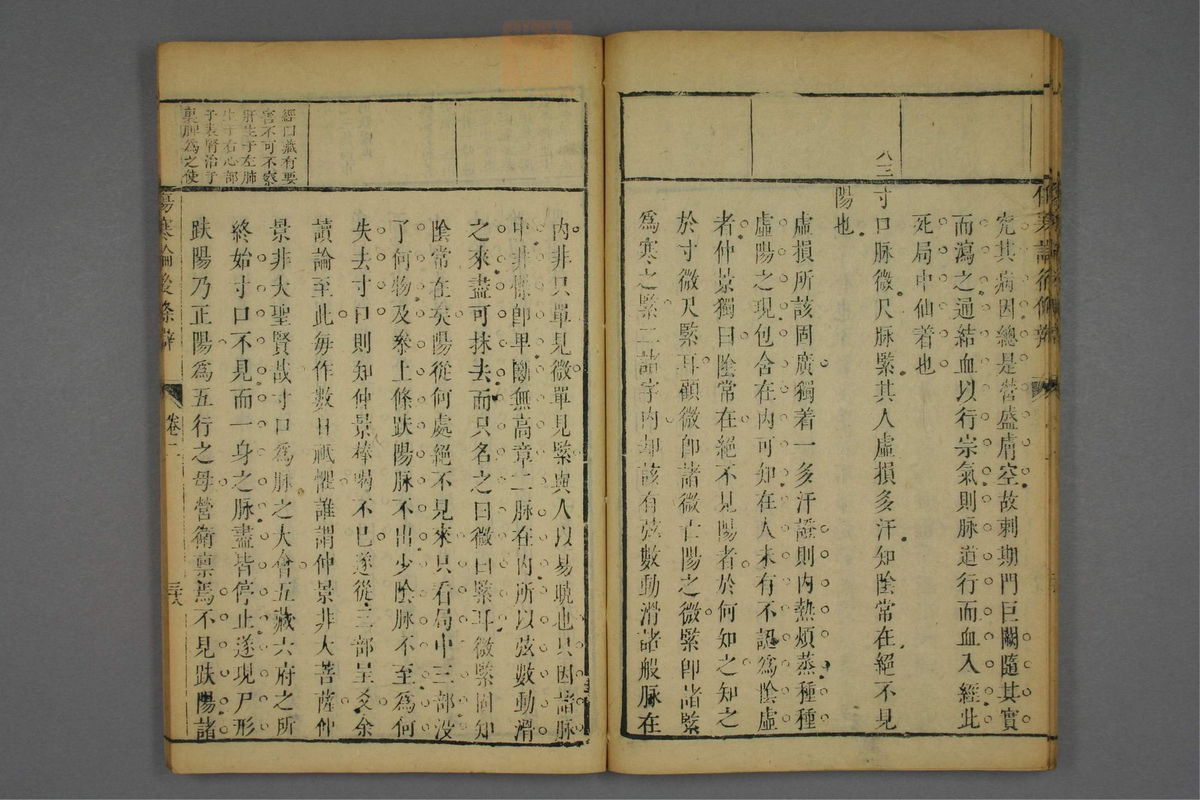 究其病因總是營盛膚空故刺期門巨闕隨其實
而瀉之通結血以行宗氣則脉道行而血入經此
死局中仙着也
八三
寸口脉微尺脉緊其人虛損多汗知陰常在絕不見
陽也
虛損所該固廣獨着一多汗證則內熱煩蒸種種
虛陽之現包含在內可知在人未有不認爲陰虛
者仲景獨曰陰常在絕不見陽者於何知之知之
於寸微尺緊耳顧微卽諸微亡陽之微緊卽諸緊
爲寒之緊二諸字內却該有弦數動滑諸般脉在
內非只單見微單見緊與人以易曉也只因諸脉
中非慓卽卑斷無高章二脉在內所以弦數動滑
之來盡可抹去而只名之曰微曰緊耳微緊固知
陰常在矣陽從何處絕不見來只看局中三部沒
了何物及叅上條趺陽脉不出少陰脉不至爲何
失去寸口則知仲景棒喝不已遂從三部呈爻余
讀論至此每作數日祇懼誰謂仲景非大菩薩仲
景非大聖賢哉寸口爲脉之大會五藏六府之所
終始寸口不見而一身之脉盡皆停止遂現尸形
趺陽乃正陽爲五行之母營衛禀焉不見趺陽諸
經曰藏有要
害不可不察
肝生于左肺
生于右心部
于表腎治于
裏脾爲之使
傷寒論後條辨
卷二
三六